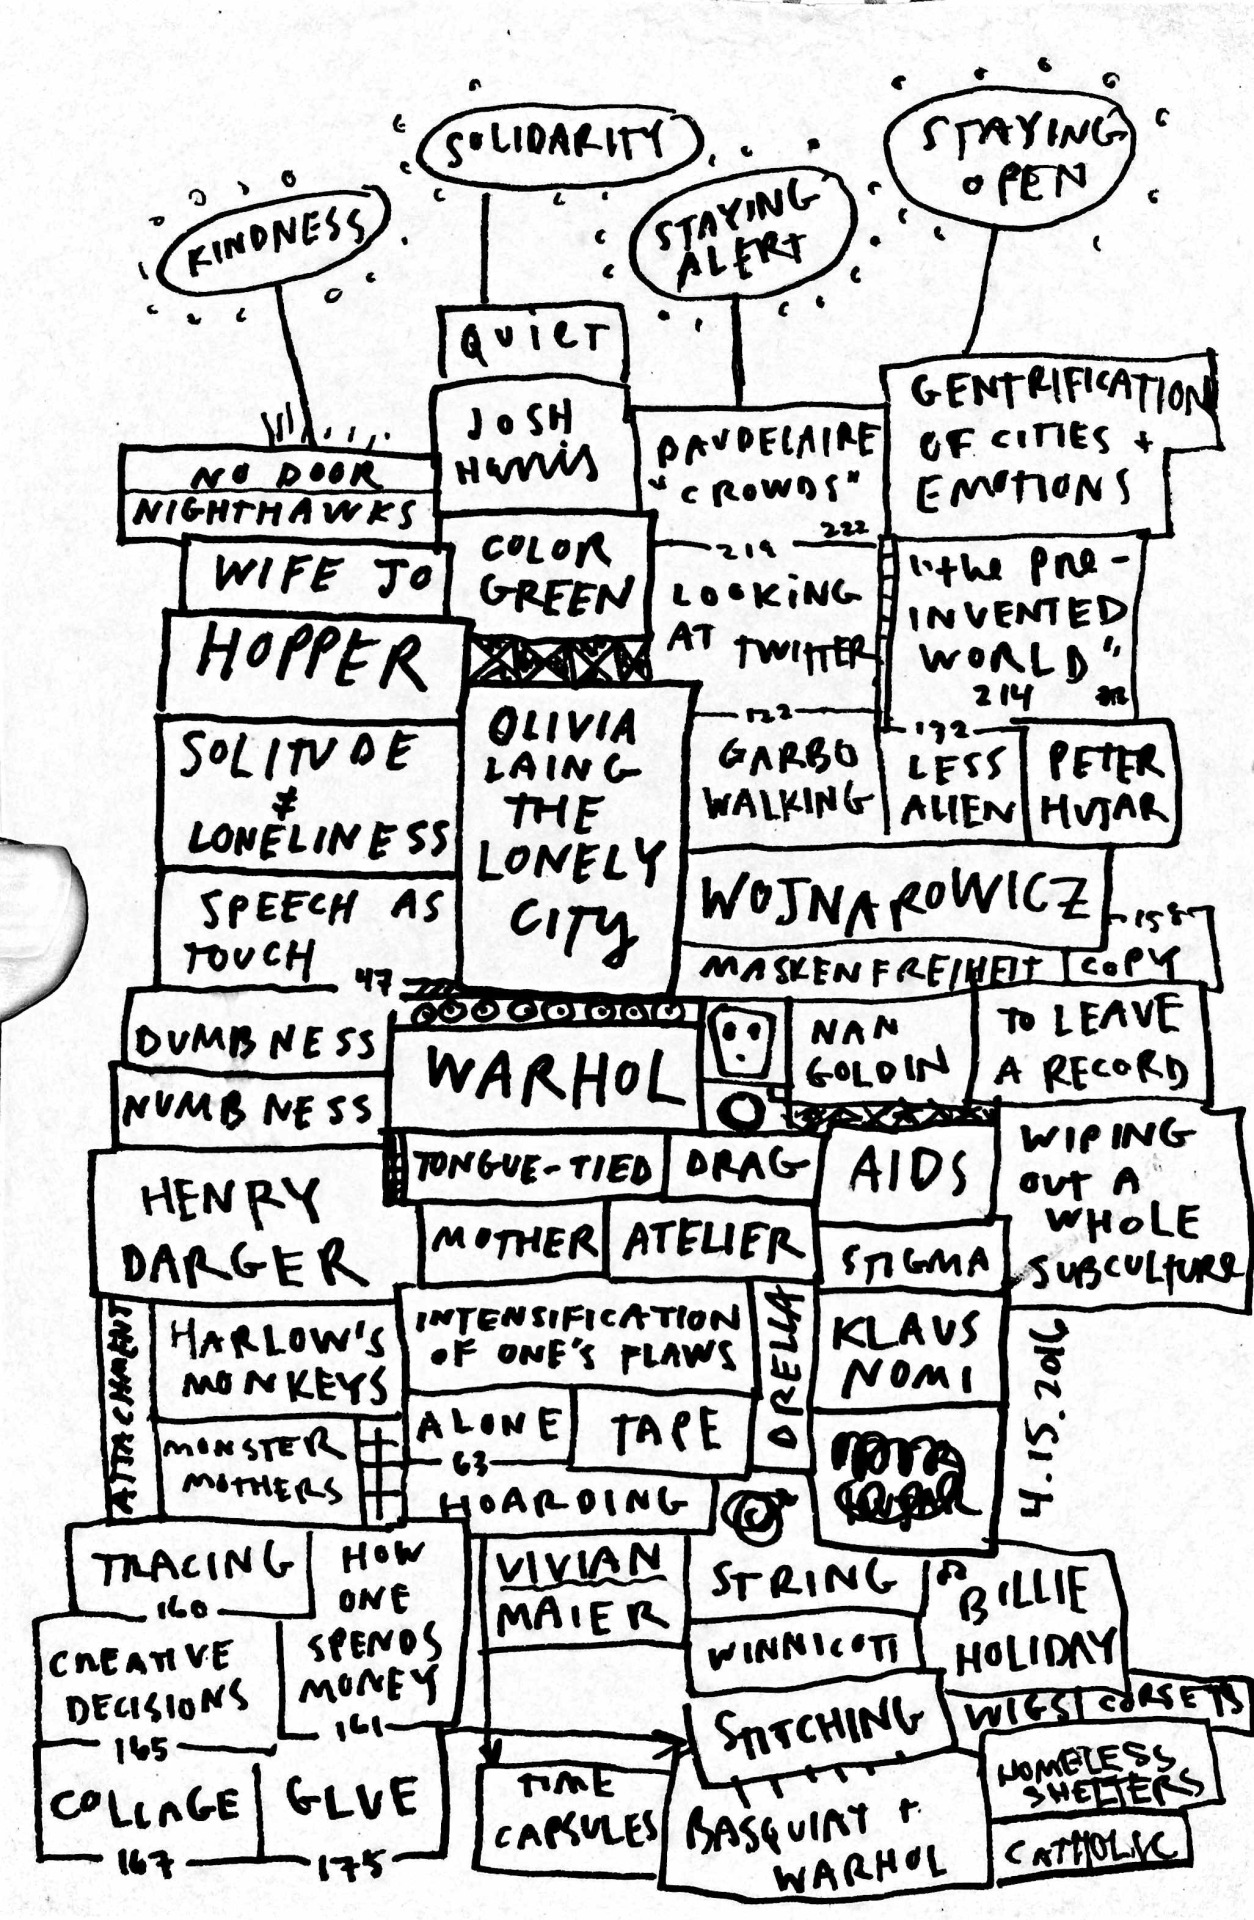 SOLIDARITY
STAYING
OPEN
KINDNESS
STAYING
ALERT
QUIET
JOSH
Harris
GENTRIFICATION
OF CITIES +
EMOTIONS
BAUDELAIRE
"CROWDS"
222
NO DOOR
NIGHTHAWKS
COLOR
GREEN
219
LOOKING
AT TWITTER
"the PRE-
INVENTED
WORLD"
214
WIFE JO
HOPPER
OLIVIA
LAING
THE
LONELY
CITY
SOLITUDE
≠
LONELINESS
SPEECH AS
TOUCH
47
122
GARBO
WALKING
132
LESS
ALIEN
PETER
HUJAR
WOJNAROWICZ
MASKENFREIHEIT
158
COPY
DUMBNESS
NUMBNESS
WARHOL
NAN
GOLDIN
TO LEAVE
A RECORD
TONGUE-TIED
DRAG
AIDS
WIPING
OUT A
WHOLE
SUBCULTURE
HENRY
DARGER
MOTHER
ATELIER
STIGMA
ATTACHMENT
HARLOW'S
MONKEYS
INTENSIFICATION
OF ONE'S FLAWS
DRELLA
KLAUS
NOMI
4.15.2016
MONSTER
MOTHERS
ALONE
63
TAPE
HOARDING
TRACING
160
HOW
ONE
SPENDS
MONEY
161
VIVIAN
MAIER
STRING
WINNICOTT
BILLIE
HOLIDAY
CREATIVE
DECISIONS
165
STITCHING
WIGS
CORSETS
COLLAGE
167
GLUE
175
TIME
CAPSULES
BASQUIAT +
WARHOL
HOMELESS
SHELTERS
CATHOLIC